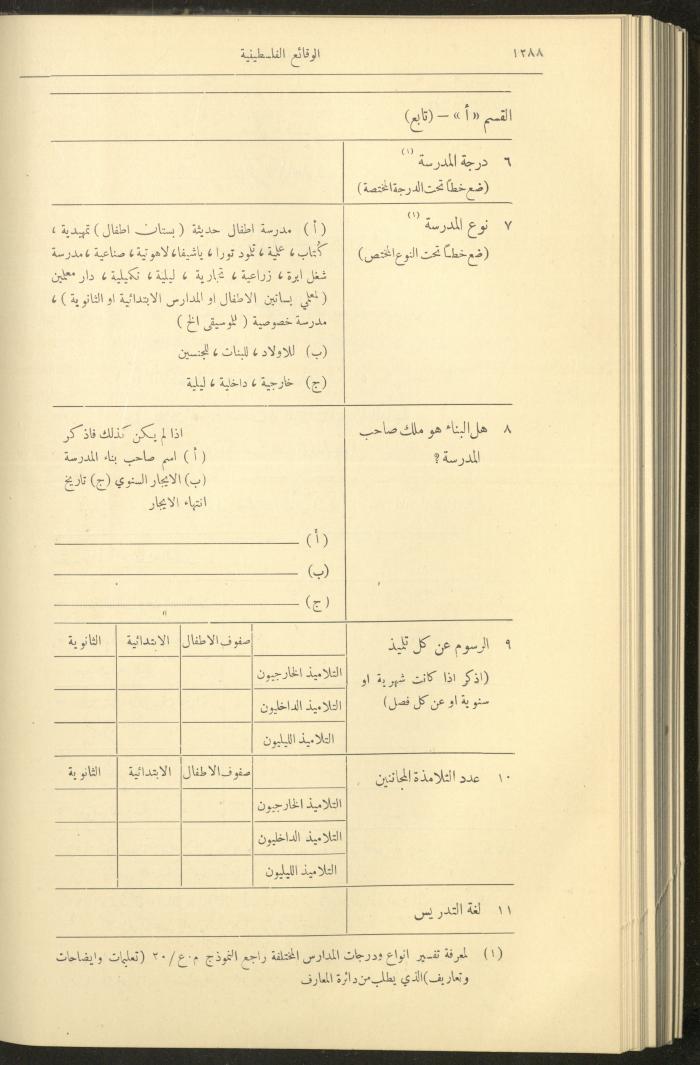 ١٢٨٨ الوقائع الفلسطينية
القسم «أ» — (تابع)
٦ درجة المدرسة (١)
(ضع خطاً تحت الدرجة المختصة)
٧ نوع المدرسة (١)
(ضع خطاً تحت النوع المختص)
(أ) مدرسة اطفال حديثة (بستان اطفال) تمهيدية،
كُتاب، علمية، تلمود تورا، ياشيفا، لاهوتية، صناعية، مدرسة
شغل ابرة، زراعية، تجارية، ليلية، تكميلية، دار معلمين
(لمعلمي بساتين الاطفال او المدارس الابتدائية او الثانوية)،
مدرسة خصوصية (للموسيقى الخ)
(ب) للاولاد، للبنات، للجنسين
(ج) خارجية، داخلية، ليلية
٨ هل البناء هو ملك صاحب
المدرسة؟
اذا لم يكن كذلك فاذكر
(أ) اسم صاحب بناء المدرسة
(ب) الايجار السنوي (ج) تاريخ
انتهاء الايجار
(أ)
(ب)
(ج)
٩ الرسوم عن كل تلميذ
(اذكر اذا كانت شهرية او
سنوية او عن كل فصل)
صفوف الاطفال الابتدائية الثانوية
التلاميذ الخارجيون
التلاميذ الداخليون
التلاميذ الليليون
١٠ عدد التلامذة المجانين
صفوف الاطفال الابتدائية الثانوية
التلاميذ الخارجيون
التلاميذ الداخليون
التلاميذ الليليون
١١ لغة التدريس
(١) لمعرفة تفسير انواع ودرجات المدارس المختلفة راجع النموذج م.ع/٢٠ (تعليمات وايضاحات
وتعاريف) الذي يطلب من دائرة المعارف